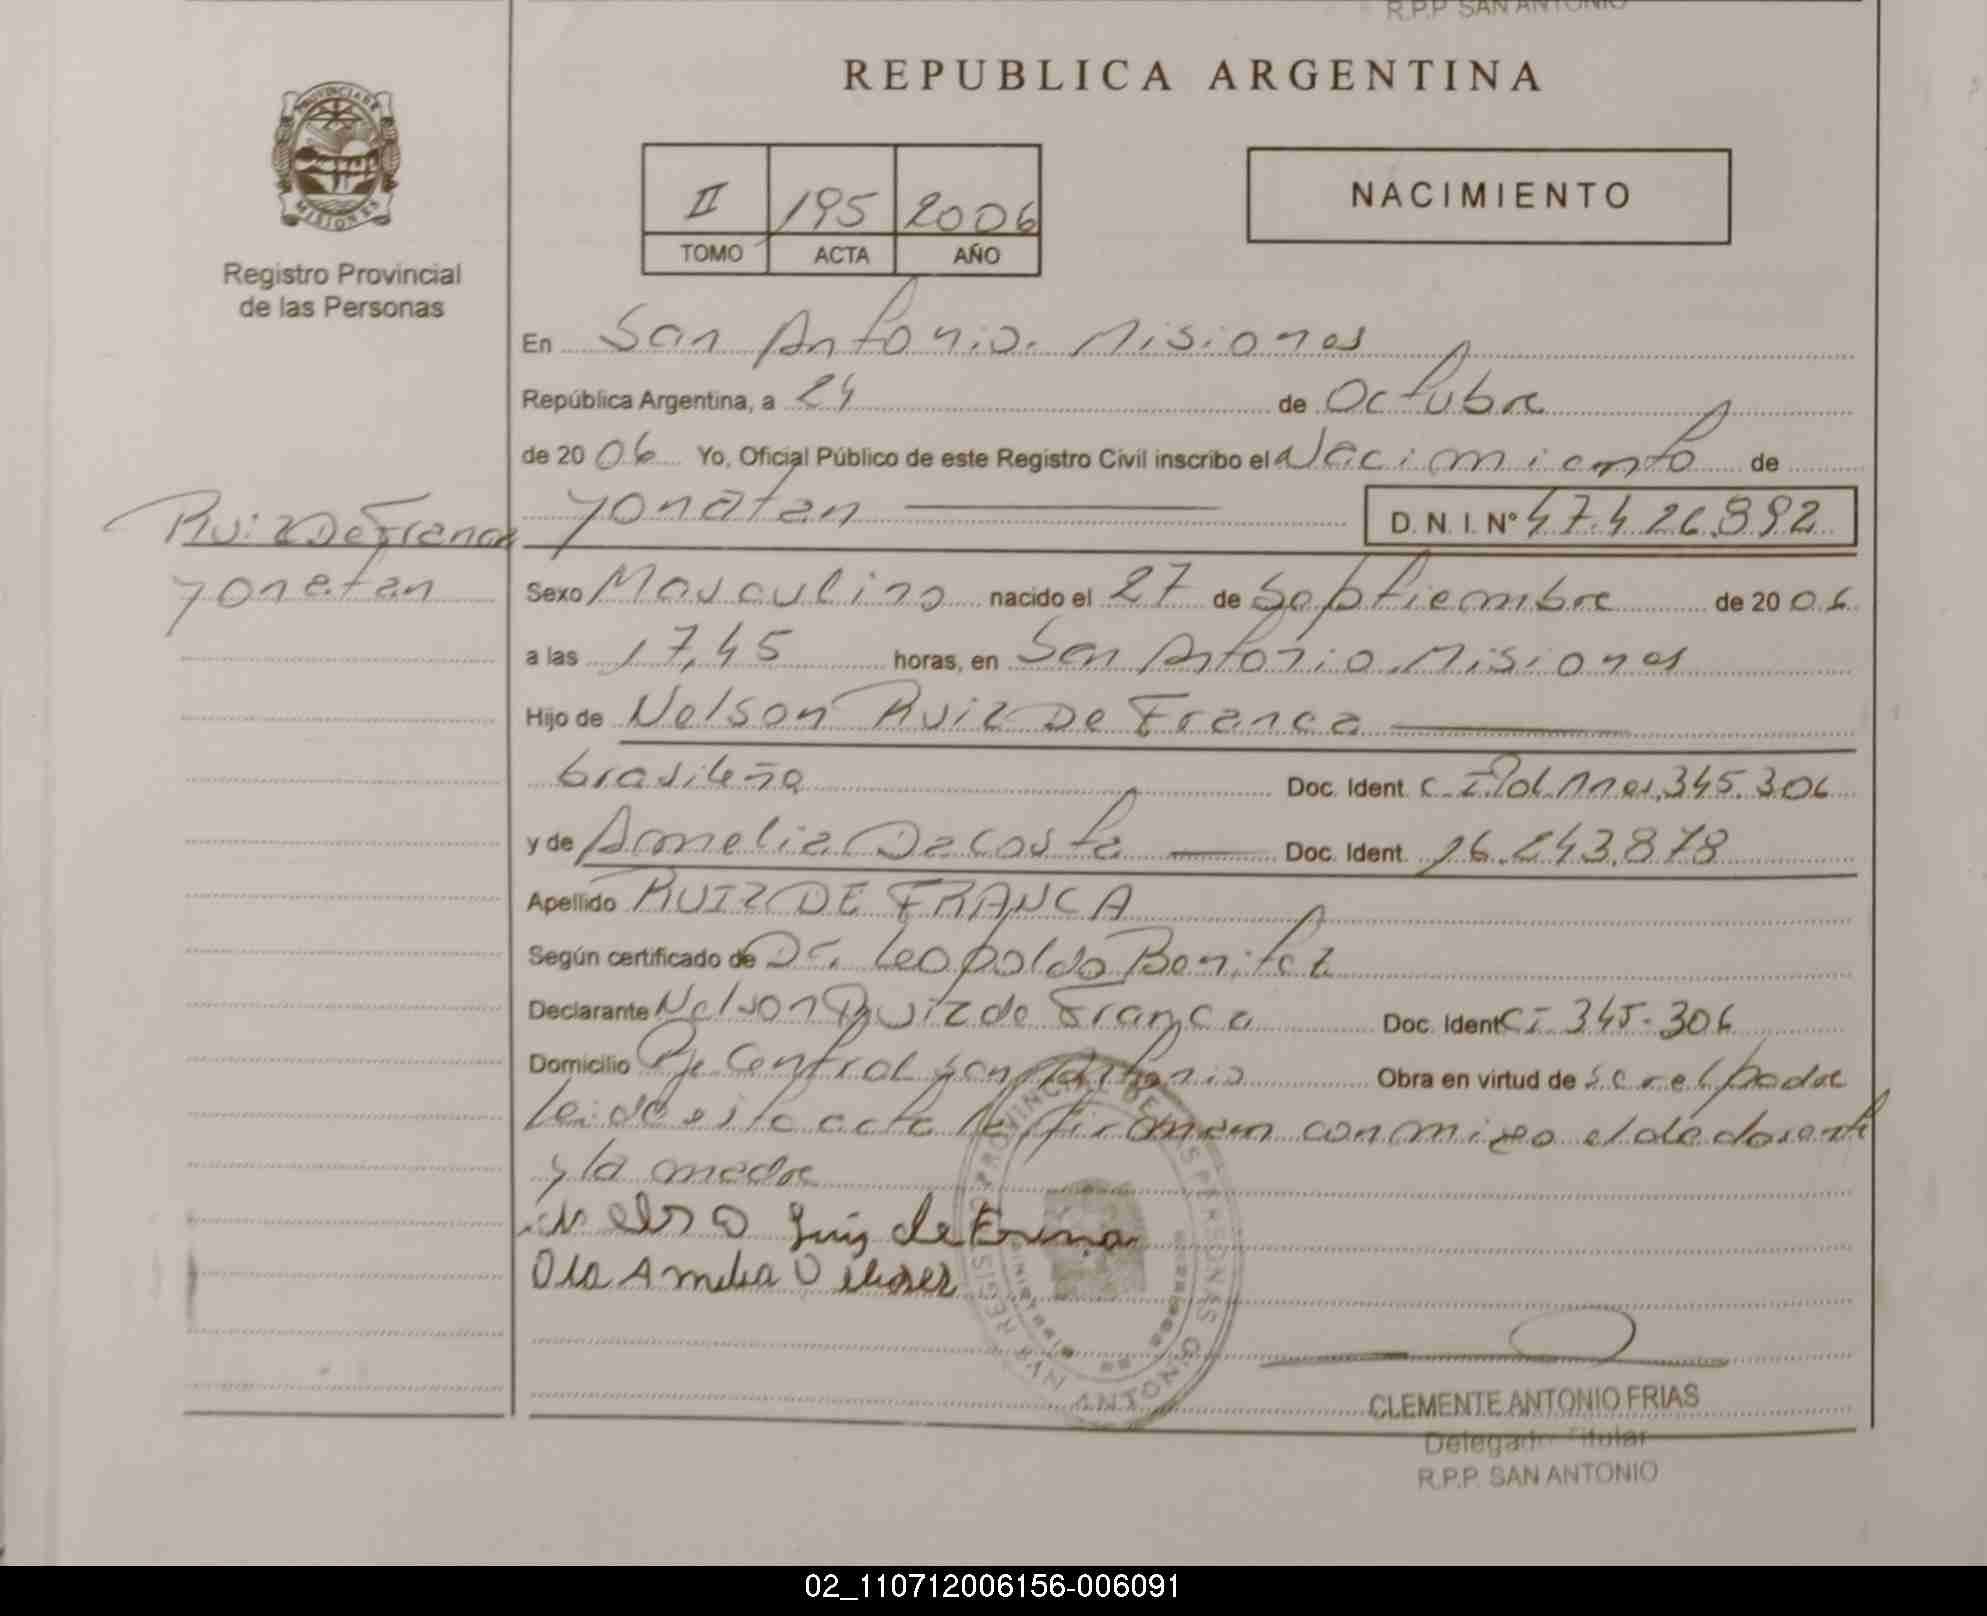 R.P.P. SAN ANTONIO
REPUBLICA ARGENTINA
PROVINCIA DE MISIONES
Registro Provincial
de las Personas
II 195 2006
TOMO ACTA AÑO
NACIMIENTO
En San Antonio. Misiones
República Argentina, a 24 de Octubre
de 2006 Yo, Oficial Público de este Registro Civil inscribo el Nacimiento de
Ruiz De Franca
yonatan
yonatan D.N.I. Nº 47.426.992
Sexo Masculino nacido el 27 de Septiembre de 2006
a las 17,45 horas, en San Antonio. Misiones
Hijo de Nelson Ruiz De Franca
brasileña Doc. Ident. C.I. Pol. Mnes. 345.306
y de Amelia Dacosta Doc. Ident. 16.243.878
Apellido RUIZ DE FRANCA
Según certificado de Dr. Leopoldo Benitez
Declarante Nelson Ruiz de Franca Doc. Ident CI 345.306
Domicilio Pje Central San Antonio Obra en virtud de ser el padre
Leida esta acta la firman conmigo el declarante
y la madre
REGISTRO PROVINCIAL DE LAS PERSONAS
SAN ANTONIO
CLEMENTE ANTONIO FRIAS
Delegado Titular
R.P.P. SAN ANTONIO
02_110712006156-006091